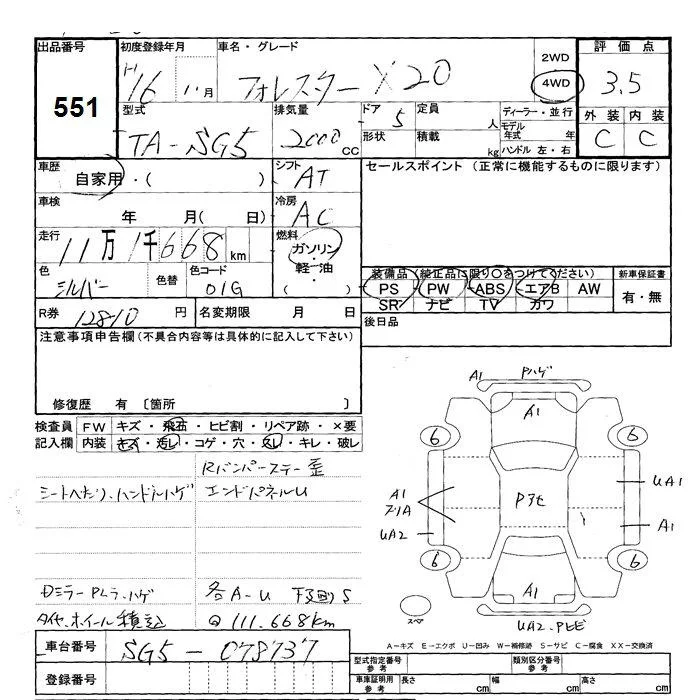 出品番号 初度登録年月 車名・グレード 2WD 評価点
551 H16 11月 フォレスター X20 4WD 3.5
型式 排気量 ドア 5 定員 人 ディーラー・並行 外装 内装
TA-SG5 2000cc 形状 積載 kg モデル年式 年 C C
ハンドル 左・右
車歴 自家用・( ) シフト AT セールスポイント (正常に機能するものに限ります)
車検 年 月( 日) 冷房 AC
走行 11万1千668km 燃料 ガソリン・軽油・( )
色 シルバー 色替 色コード 01G
装備品 (純正品に限り○をつけてください) 新車保証書
PS PW ABS エアB AW 有・無
SR ナビ TV カワ
R券 12810円 名変期限 月 日 後日品
注意事項申告欄(不具合内容等は具体的に記入して下さい)
修復歴 有 〔箇所 〕
検査員記入欄 FW キズ・飛石・ヒビ割・リペア跡・×要
内装 キズ・汚レ・コゲ・穴・欠レ・キレ・破レ
Rバンパーステー歪
シートヘたり、ハンドルハゲ エンドパネルU
Dミラー ハゲ 各A-U 下廻りS
タイヤ、ホイール積込 Q 111.668km
A1 Pハゲ
A1
6 6
UA1
A1
A1
UA2
6 6
A1
スペア UA2、Pヒビ
A-キズ E-エクボ U-凹み W-補修跡 S-サビ C-腐食 XX-交換済
車台番号 SG5-078737
登録番号
型式指定番号 参考 類別区分番号 参考
車庫証明用 参考 長さ cm 幅 cm 高さ cm